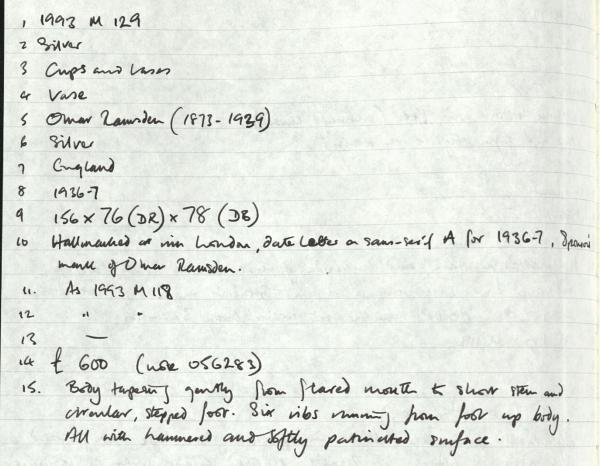 1 1993 M 129
2 Silver
3 Cups and Vases
4 Vase
5 Omar Ramsden (1873-1939)
6 Silver
7 England
8 1936-7
9 156 x 76 (DR) x 78 (DB)
10 Hallmarked on rim London, date letter a sans-serif A for 1936-7, Sponsor's
mark of Omar Ramsden.
11. As 1993 M 118
12 " "
13 —
14 £ 600 (056283)
15. Body tapering gently from flared mouth to short stem and
circular, stepped foot. Six ribs running from foot up body.
All with hammered and softly patinated surface.